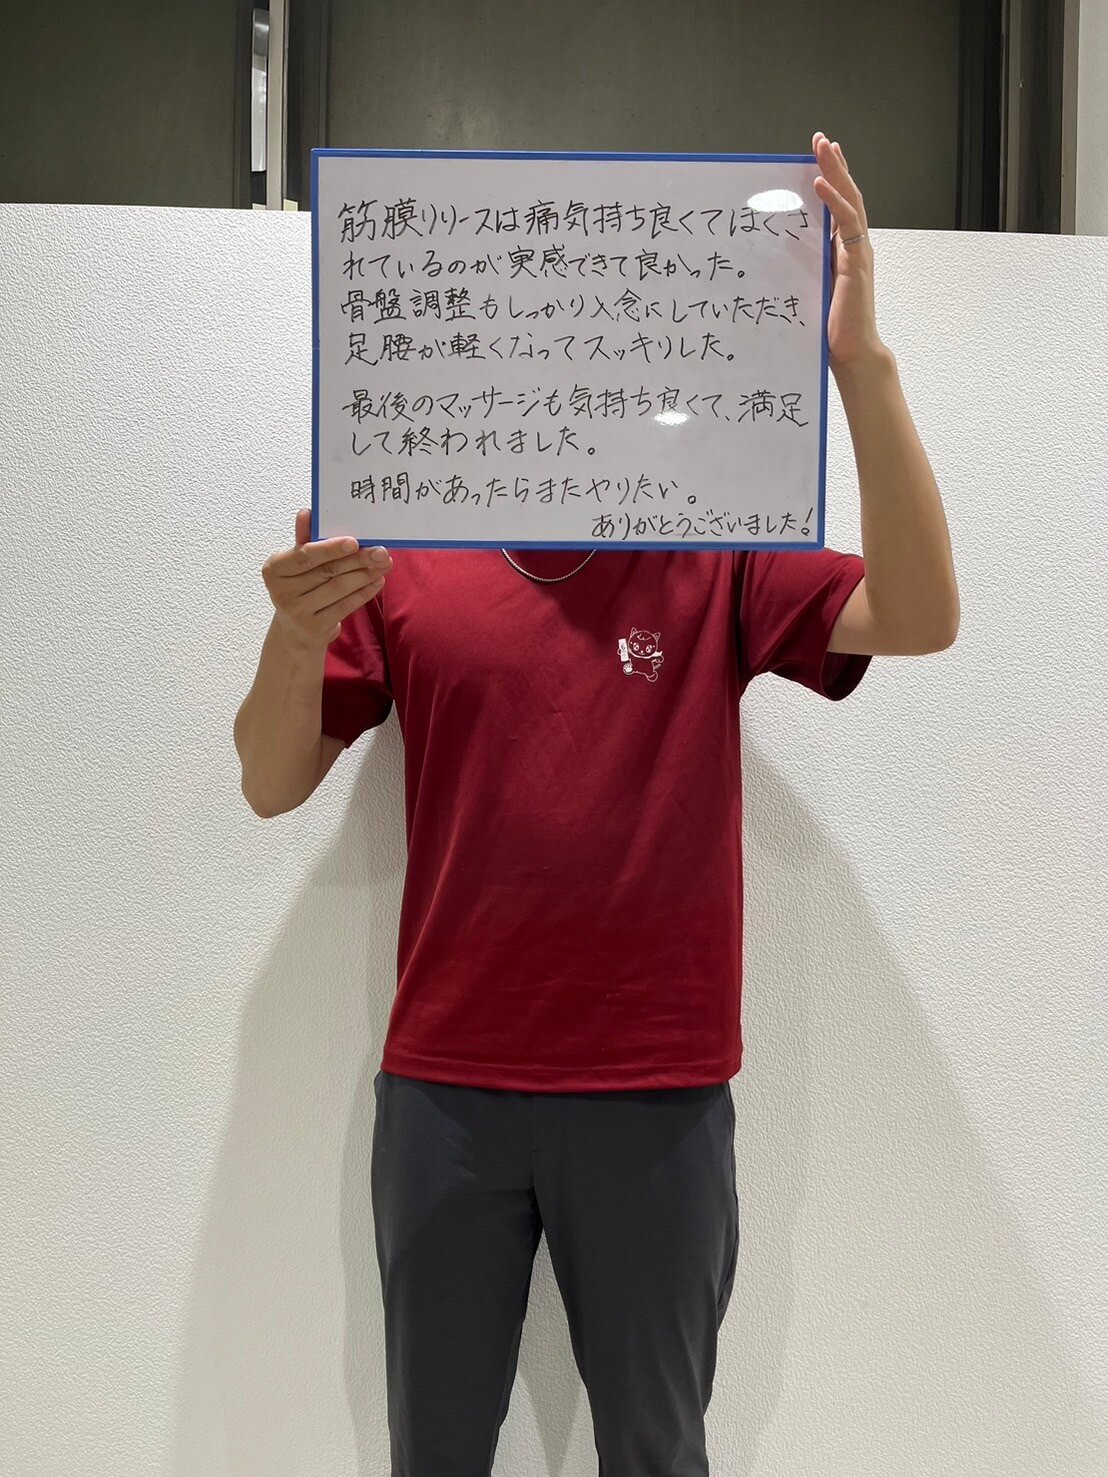 筋膜リリースは痛気持ち良くてほぐさ
れているのが実感できて良かった。
骨盤調整もしっかり入念にしていただき、
足腰が軽くなってスッキリした。
最後のマッサージも気持ち良くて、満足
して終われました。
時間があったらまたやりたい。
ありがとうございました!